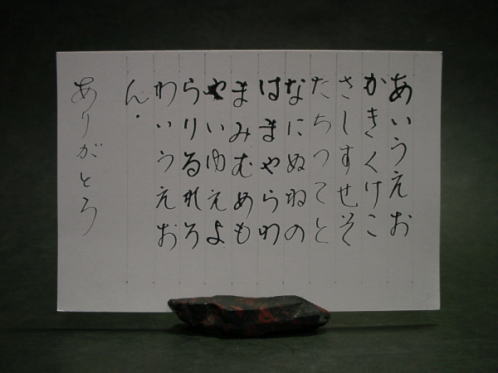 あいうえお
かきくけこ
さしすせそ
たちつてと
なにぬねの
はまやらわ
まみむめも
やいゆえよ
らりるれろ
わいうえお
ん.
ありがとう